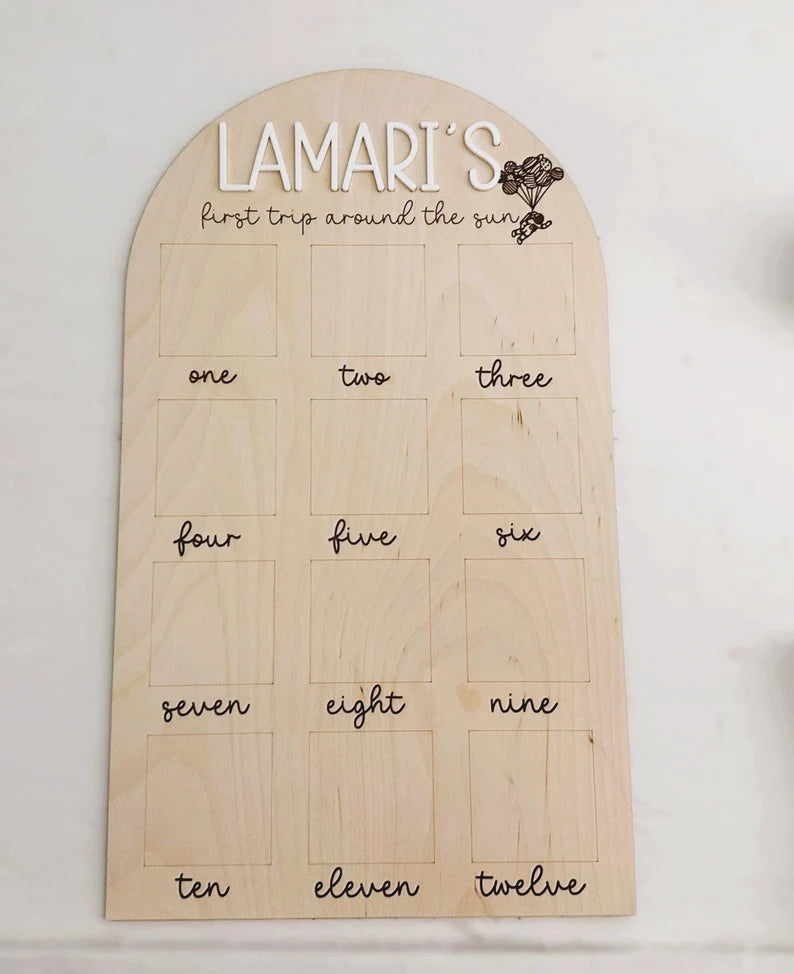 LAMARI'S
first trip around the sun
one two three
four five six
seven eight nine
ten eleven twelve